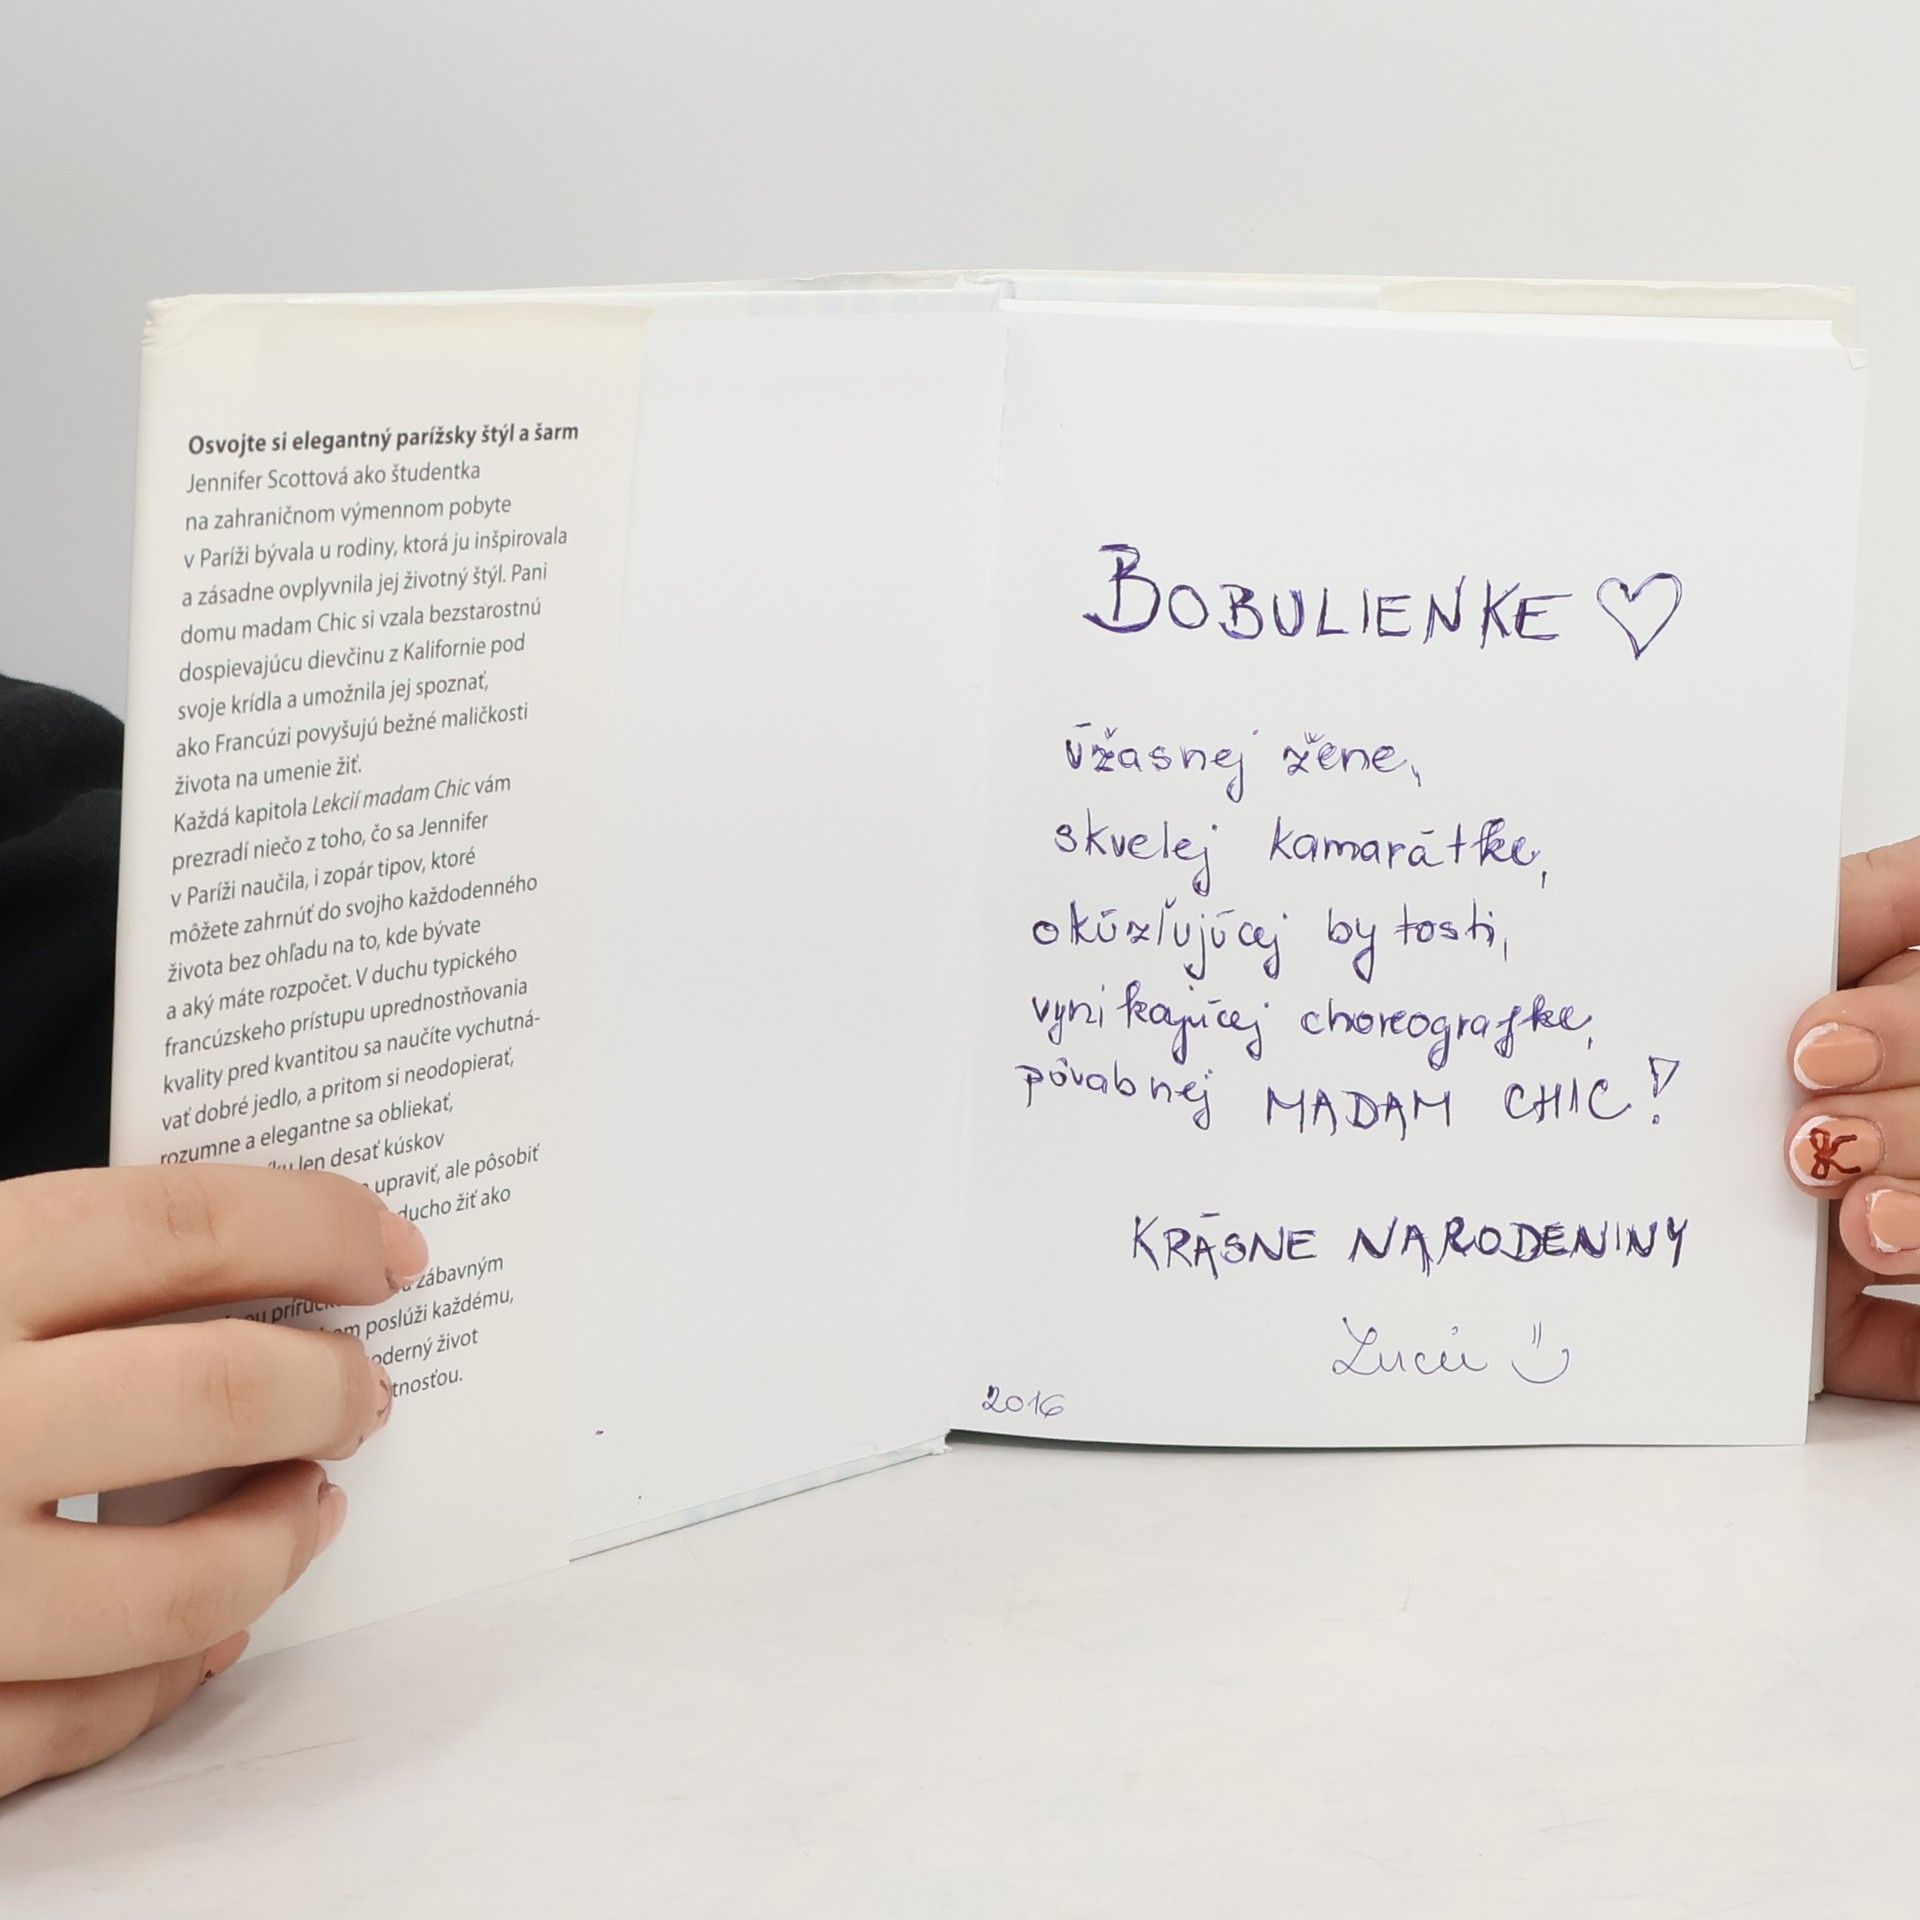 Osvojte si elegantný parížsky štýl a šarm
Jennifer Scottová ako študentka
na zahraničnom výmennom pobyte
v Paríži bývala u rodiny, ktorá ju inšpirovala
a zásadne ovplyvnila jej životný štýl. Pani
domu madam Chic si vzala bezstarostnú
dospievajúcu dievčinu z Kalifornie pod
svoje krídla a umožnila jej spoznať,
ako Francúzi povyšujú bežné maličkosti
života na umenie žiť.
Každá kapitola Lekcií madam Chic vám
prezradí niečo z toho, čo sa Jennifer
v Paríži naučila, i zopár tipov, ktoré
môžete zahrnúť do svojho každodenného
života bez ohľadu na to, kde bývate
a aký máte rozpočet. V duchu typického
francúzskeho prístupu uprednostňovania
kvality pred kvantitou sa naučíte vychutná-
vať dobré jedlo, a pritom si neodopierať,
rozumne a elegantne sa obliekať,
len desať kúskov
upraviť, ale pôsobiť
žiť ako
zábavným
poslúži každému,
život
BOBULIENKE ♡
úžasnej žene,
skvelej kamarátke,
okúzľujúcej bytosti,
vynikajúcej choreografke,
pôvabnej MADAM CHIC!
KRÁSNE NARODENINY
2016